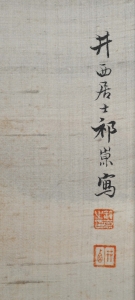 井西居士祁崇寫